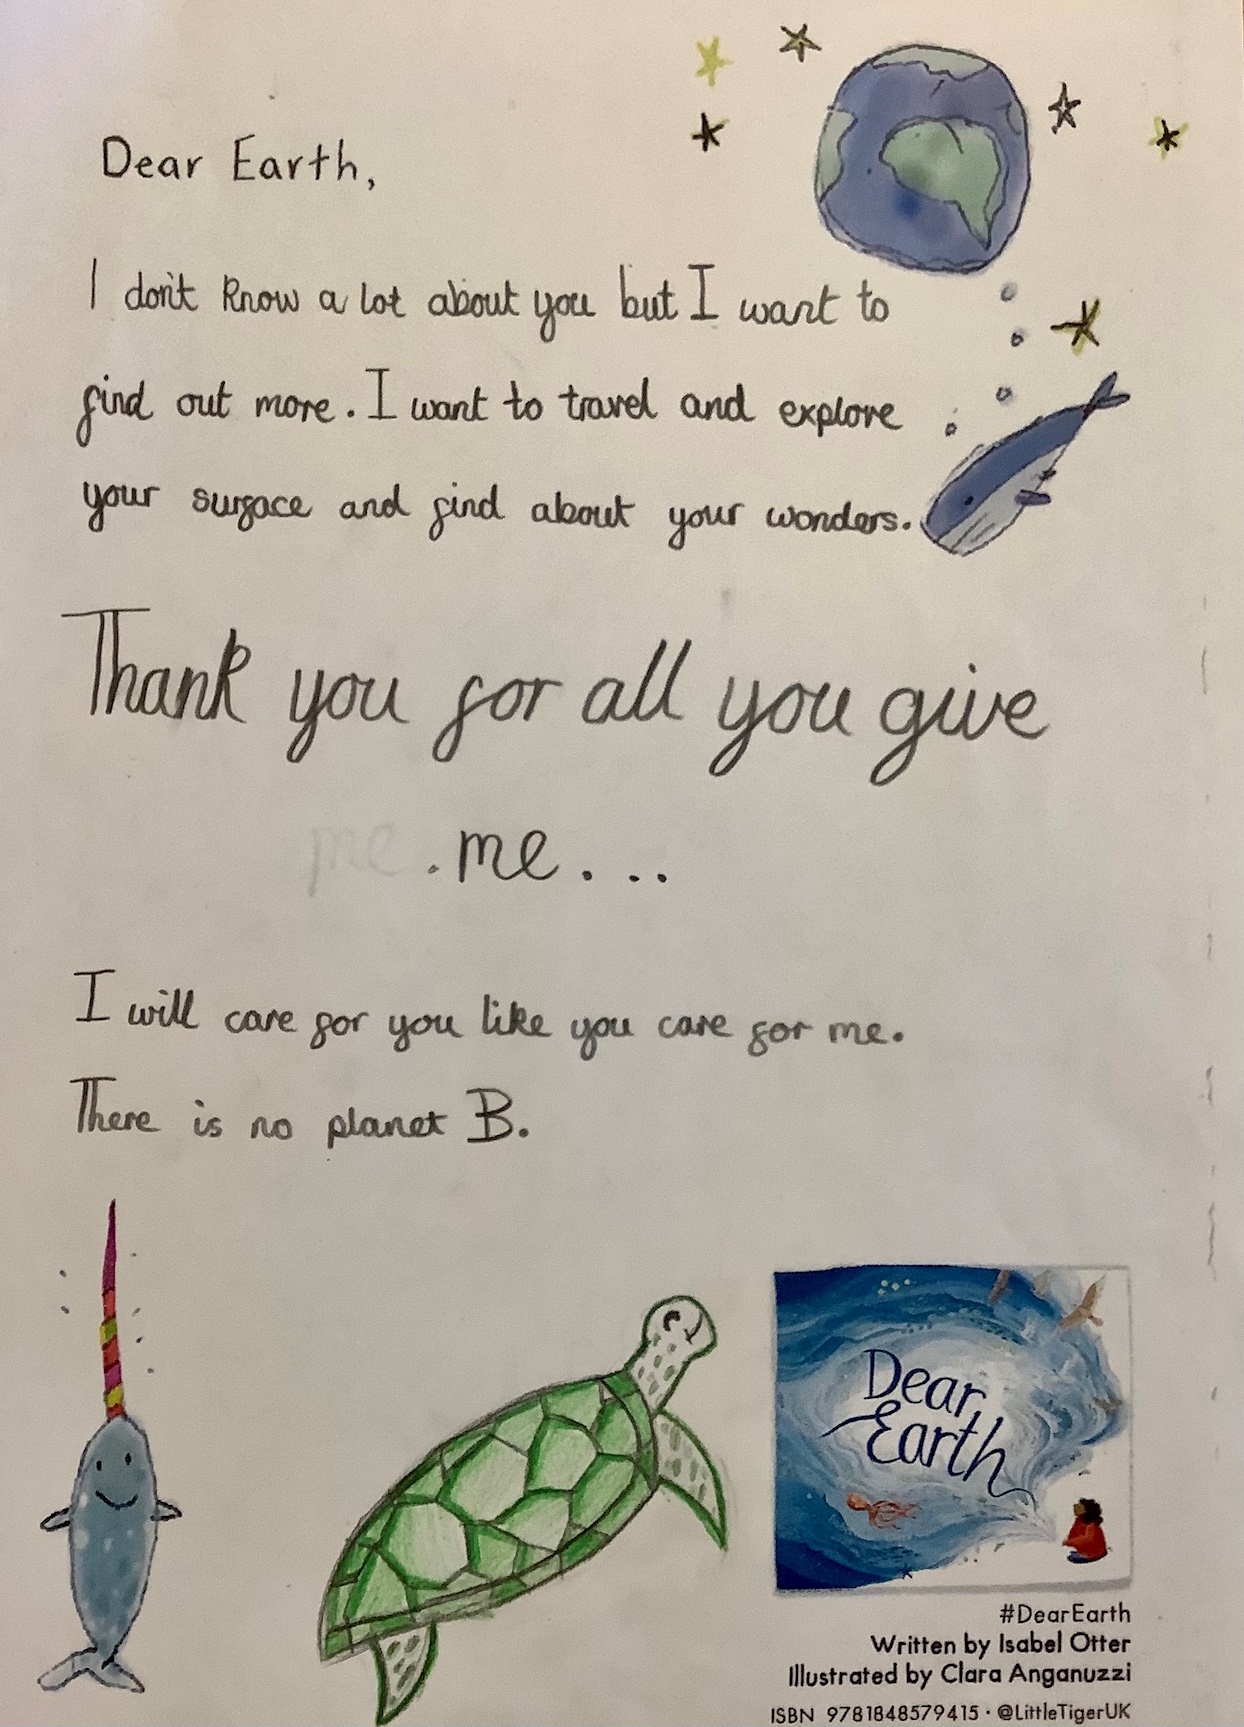 Dear Earth,
I don't know a lot about you but I want to
find out more. I want to travel and explore
your surface and find about your wonders.
Thank you for all you give
me . me . . .
I will care for you like you care for me.
There is no planet B.
Dear
Earth
#DearEarth
Written by Isabel Otter
Illustrated by Clara Anganuzzi
ISBN 9781848579415 · @LittleTigerUK